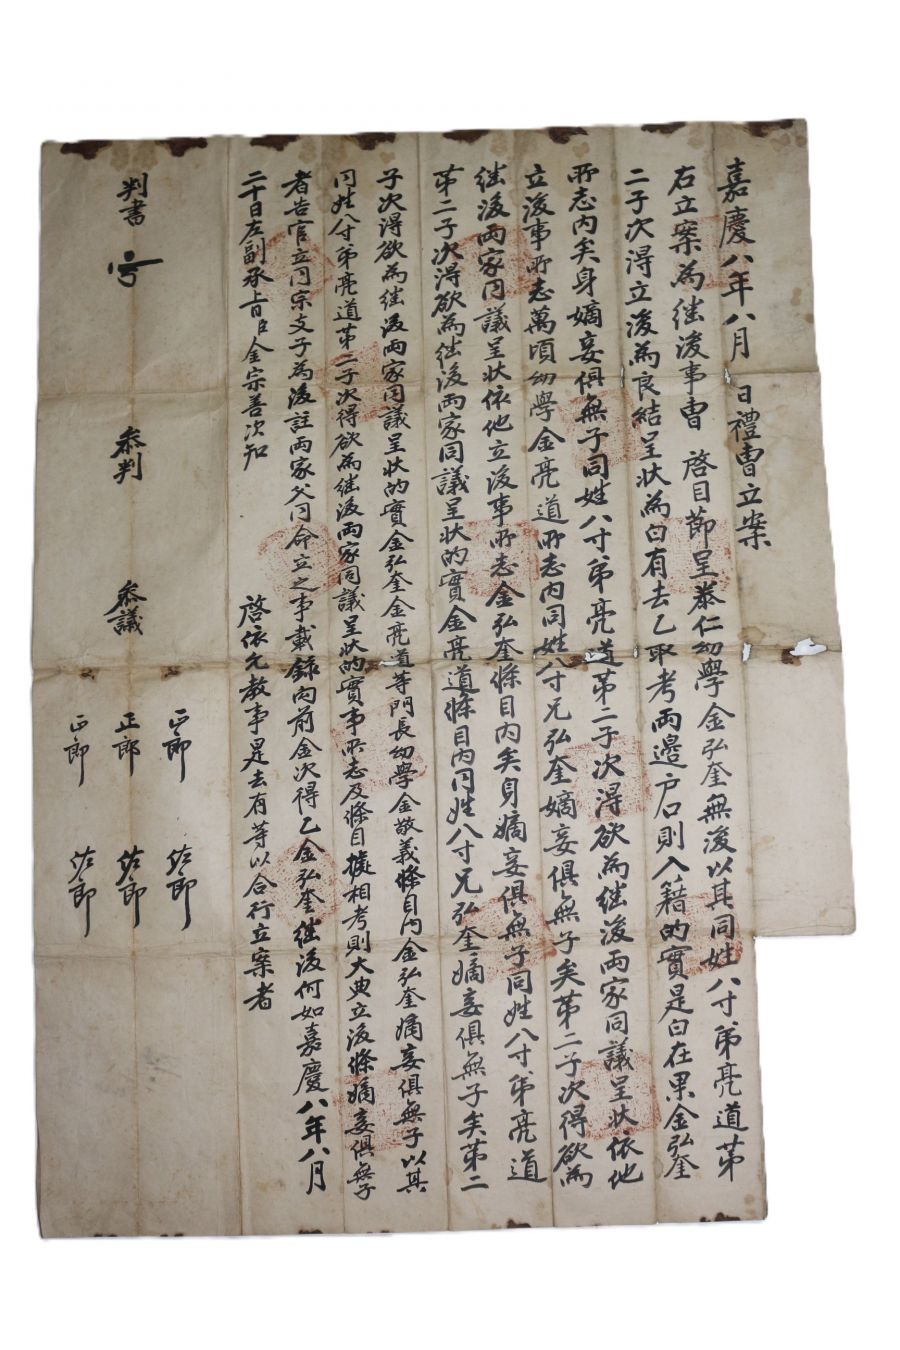 嘉慶八年八月 日禮曹立案
右立案為継後事曹 啓目節呈泰仁幼學金弘奎無後以其同姓八寸弟亮道苐
二子次得立後為良結呈狀為白有去乙取考両邊戶口則入籍的實是白在果金弘奎
所志內矣身嫡妾俱無子同姓八寸弟亮道苐二子次得欲為継後両家同議呈狀依他
立後事所志萬頃幼學金亮道所志內同姓八寸兄弘奎嫡妾俱無子矣苐二子次得欲為
継後両家同議呈狀依他立後事所志金弘奎條目內矣身嫡妾俱無子同姓八寸弟亮道
苐二子次得欲為継後両家同議呈狀的實金亮道條目內同姓八寸兄弘奎嫡妾俱無子矣苐二
子次得欲為継後両家同議呈狀的實金弘奎金亮道等門長幼學金敬義條目內金弘奎嫡妾俱無子以其
同姓八寸弟亮道苐二子次得欲為継後両家同議呈狀的實事所志及條目據相考則大典立後條嫡妾俱無子
者告官立同宗支子為後註両家父同命立之事載錄向前金次得乙金弘奎継後何如嘉慶八年八月
二十日左副承旨臣金宗善次知 啓依允敎事是去有等以合行立案者
判書 叅判 叅議 正郎 佐郎
正郎 佐郎
正郎 佐郎